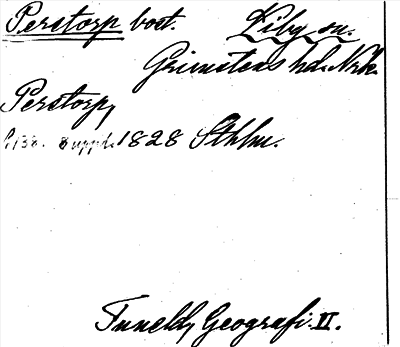 Perstorp bost. Viby sn.
Grimstens hd. Nrk.
Perstorp,
s. 138. Suppl. 1828 Sthlm.
Tuneld, Geografi. VI.